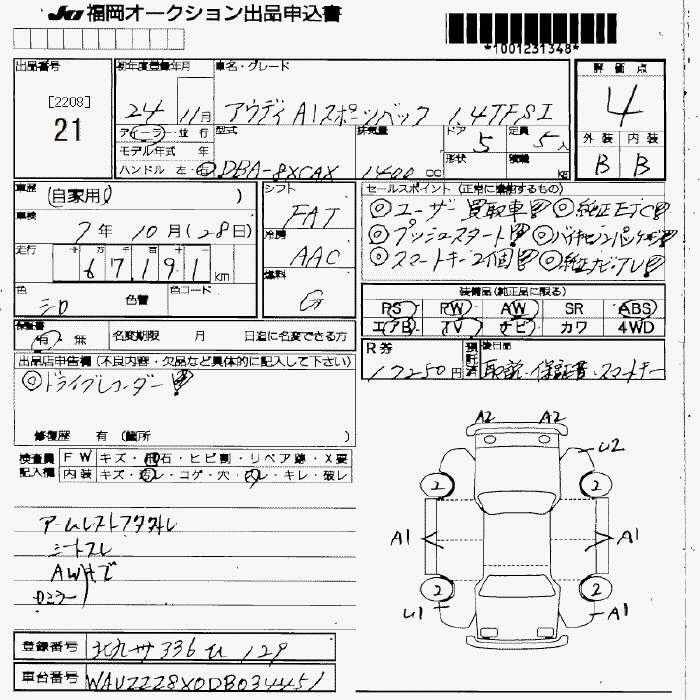 JU 福岡オークション出品申込書
*1001231348*
出品番号 初年度登録年月 車名・グレード 評価点
[2208]
21
24 年 11月 アウディ A1スポーツバック 1.4TFSI 4
ディーラー 並行 型式 排気量 ドア 5 定員 5人 外装 内装
モデル年式 年 形状 積載 kg
ハンドル 左・右 DBA-8XCAX 1400 cc B B
車歴 (自家用) シフト FAT
車検 7年 10月(28日) 冷房 AAC
走行 十 万 千 百 十 一
67191 km 燃料 G
色 シロ 色替 色コード
セールスポイント (正常に機能するもの)
◎ユーザー買取車!! ◎純正ETC!!
◎プッシュスタート!! ◎バイキセノンパッケージ!!
◎スマートキー2個!! ◎純正ナビ・TV!!
装備品(純正品に限る)
PS PW AW SR ABS
エアB TV ナビ カワ 4WD
保証書 有 無 名変期限 月 日迄に名変できる方
R券 17250円 預託済 後日品 取説・保証書・スマートキー
出品店申告欄(不良内容・欠品など具体的に記入して下さい)
◎ドライブレコーダー!!
修復歴 有 (箇所 )
検査員記入欄 FW キズ・飛石・ヒビ割・リペア跡・X要
内装 キズ・汚レ・コゲ・穴・スレ・キレ・破レ
アームレスト
シートスレ
AWキズ
A2 A2
U2
2 2
A1 A1
2 2
U1 A1
登録番号 北九州 336 129
車台番号 WAUZZZ8X0DB034451